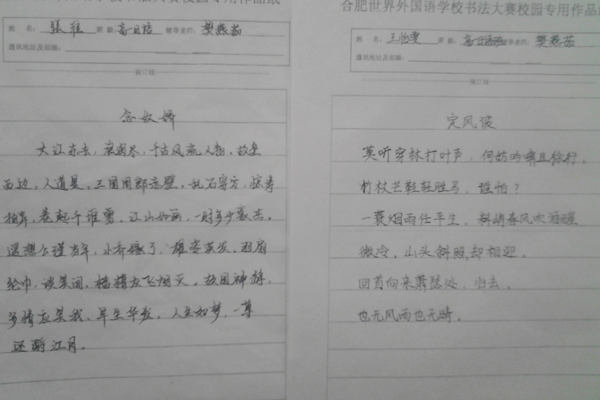 书法大赛校园专用作品纸
姓 名: 张 班 级: 高一 辅导老师: 樊燕茹
通讯地址及邮编:
装订线
念奴娇
大江东去,浪淘尽,千古风流人物,故垒
西边,人道是,三国周郎赤壁,乱石穿空,惊涛
拍岸,卷起千堆雪,江山如画,一时多少豪杰。
遥想公瑾当年,小乔嫁了,雄姿英发,羽扇
纶巾,谈笑间,樯橹灰飞烟灭。故国神游,
多情应笑我,早生华发,人生如梦,一尊
还酹江月。
合肥世界外国语学校书法大赛校园专用作品
姓 名: 王怡雯 班 级: 高一 辅导老师: 樊燕茹
通讯地址及邮编:
装订线
定风波
莫听穿林打叶声,何妨吟啸且徐行,
竹杖芒鞋轻胜马,谁怕?
一蓑烟雨任平生,料峭春风吹酒醒
微冷,山头斜照却相迎,
回首向来萧瑟处,归去,
也无风雨也无晴。